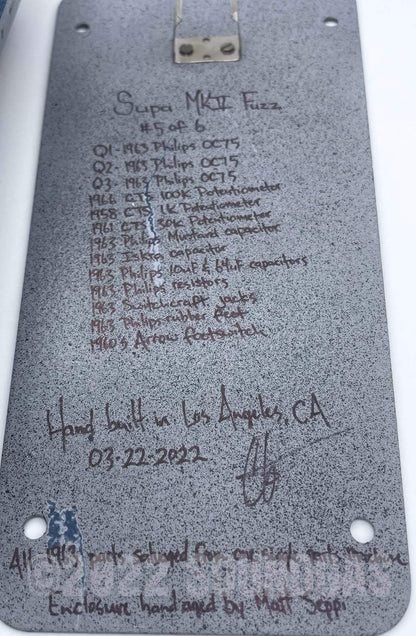 Supa MKII Fuzz
#5 of 6
Q1-1963 Philips OC75
Q2-1963 Philips OC75
Q3-1963 Philips OC75
1966 CTS 100K Potentiometer
1958 CTS 1K Potentiometer
1961 CTS 30K Potentiometer
1963 Philips Mustard capacitor
1963 Iskra capacitor
1963 Philips 10uF & 64uF capacitors
1963 Philips resistors
1963 Switchcraft jacks
1963 Philips rubber feet
1960's Arrow footswitch
Hand built in Los Angeles, CA
03-22-2022
All 1963 parts salvaged from one single parts machine
©2022
Enclosure hand aged by Matt Seppi